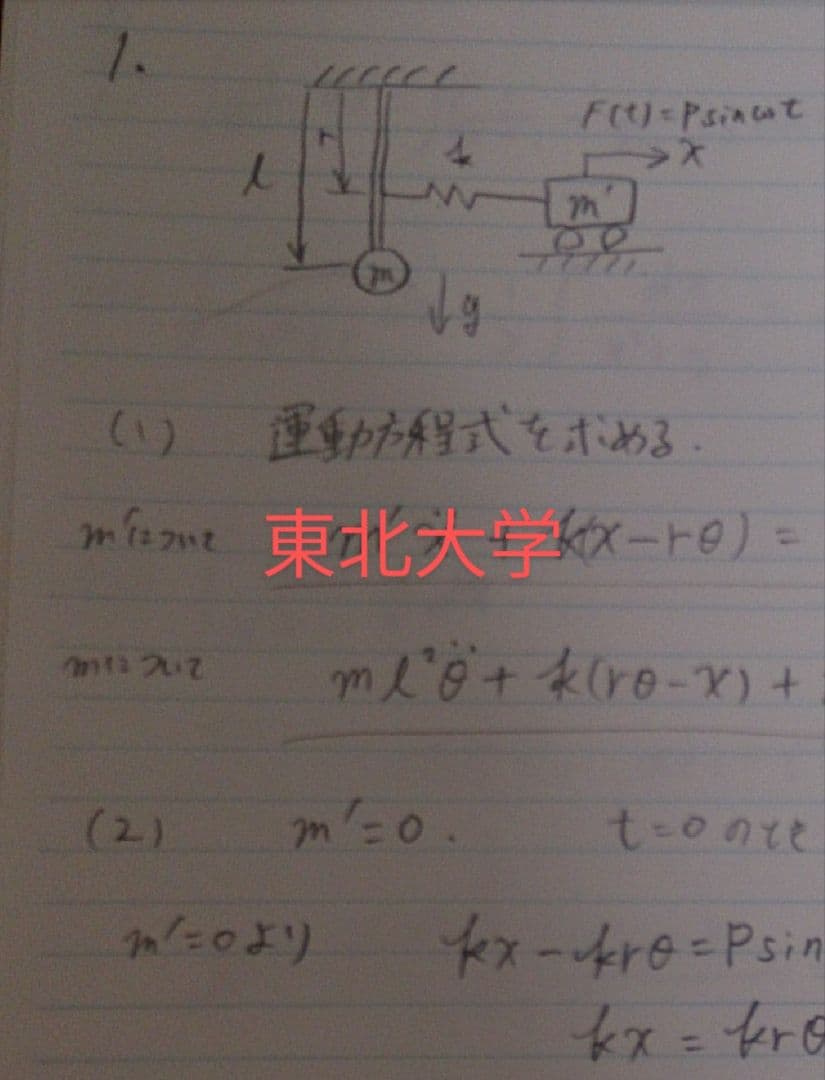 1.
F(t)=Psinωt
x
l
r
k
m'
m
g
(1) 運動方程式を求める.
m'について k(x-rθ)=
東北大学
mについて ml²θ̈+k(rθ-x)+
(2) m'=0. t=0のとき
m'=0より kx-krθ=Psin
kx=krθ